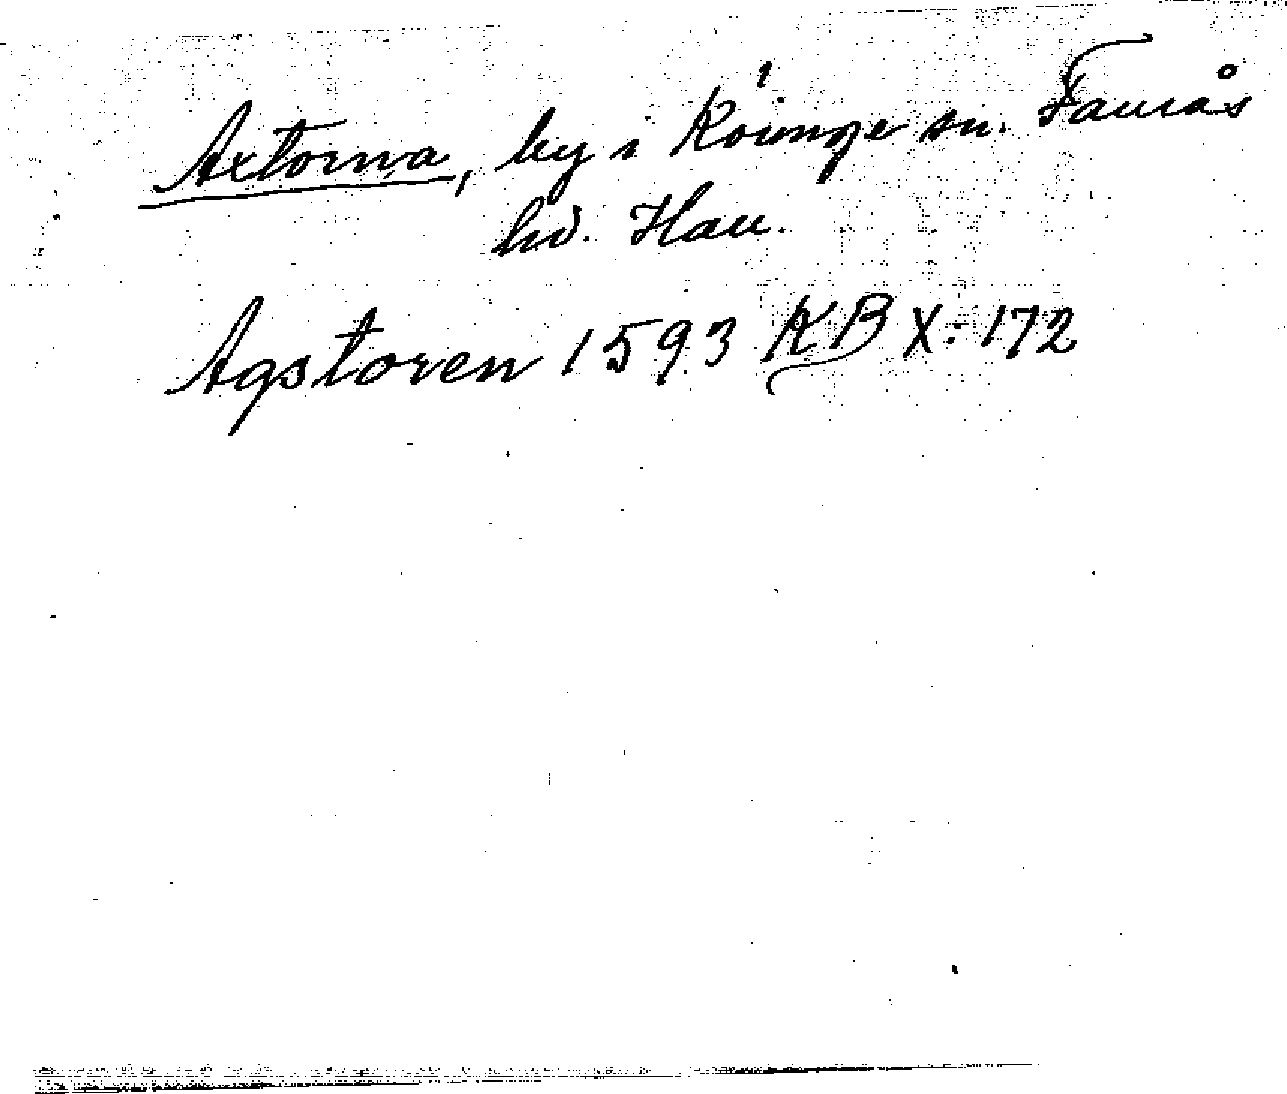 Axtorna, by i Köinge sn. Faurås
hd. Hall.
Agstoren 1593 KB X:172